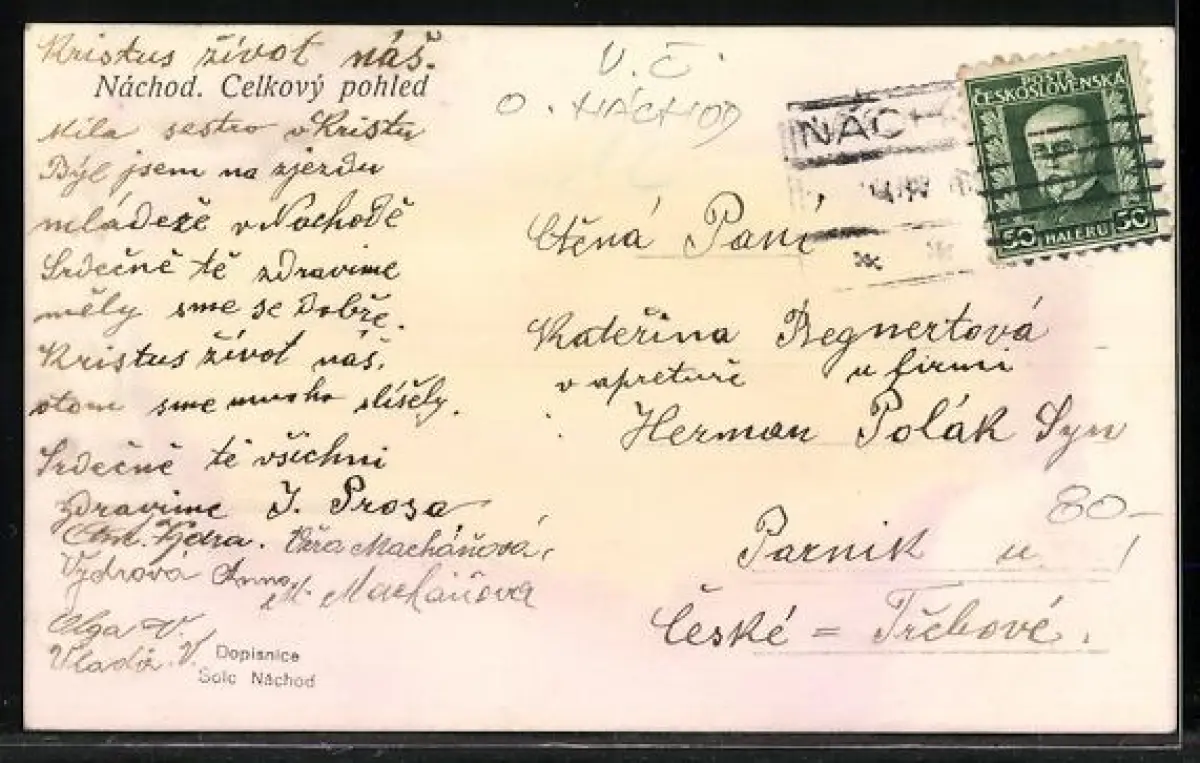 Kristus život náš.
Náchod. Celkový pohled
Milá sestro v Kristu
Býl jsem na zjezdu
mládežě v Nachodě
Srdečně tě zdravime
měly sme se dobře.
Kristus život náš.
otom sme mnoho slišely.
Srdečně tě všichni
zdravime J. Prosa
Ant. Vydra. Věra Macháňová,
Vydrová Anna M. Macháňova
Olga V.
Vladia V.
Dopisnice
Šolc Náchod
V. Č.
O. NÁCHOD
NÁCH
POŠTA
ČESKOSLOVENSKÁ
50 HALÉŘŮ 50
Ctěná Paní
Kateřina Begnertová
v apretuře u firmi
Herman Polák Syn
80-
Parnik u
České = Třebové.